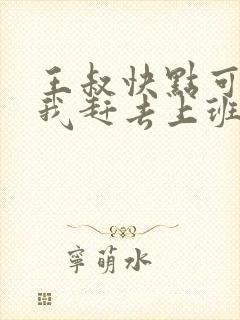 王叔快點可
我赶去上班
寧萌水